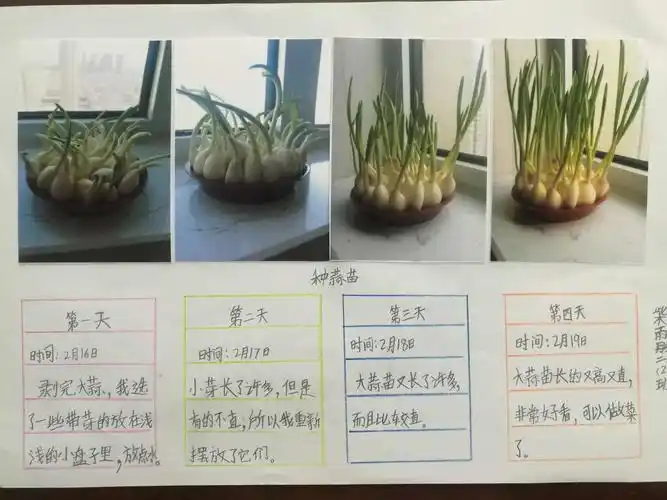 种蒜苗
第一天
时间:2月16日
剥完大蒜,我选
了一些带芽的放在浅
浅的小盘子里,放点水。
第二天
时间:2月17日
小芽长了许多,但是
有的不直,所以我重新
摆放了它们。
第三天
时间:2月18日
大蒜苗又长了许多,
而且比较直。
第四天
时间:2月19日
大蒜苗长的又高又直,
非常好看,可以做菜
了。